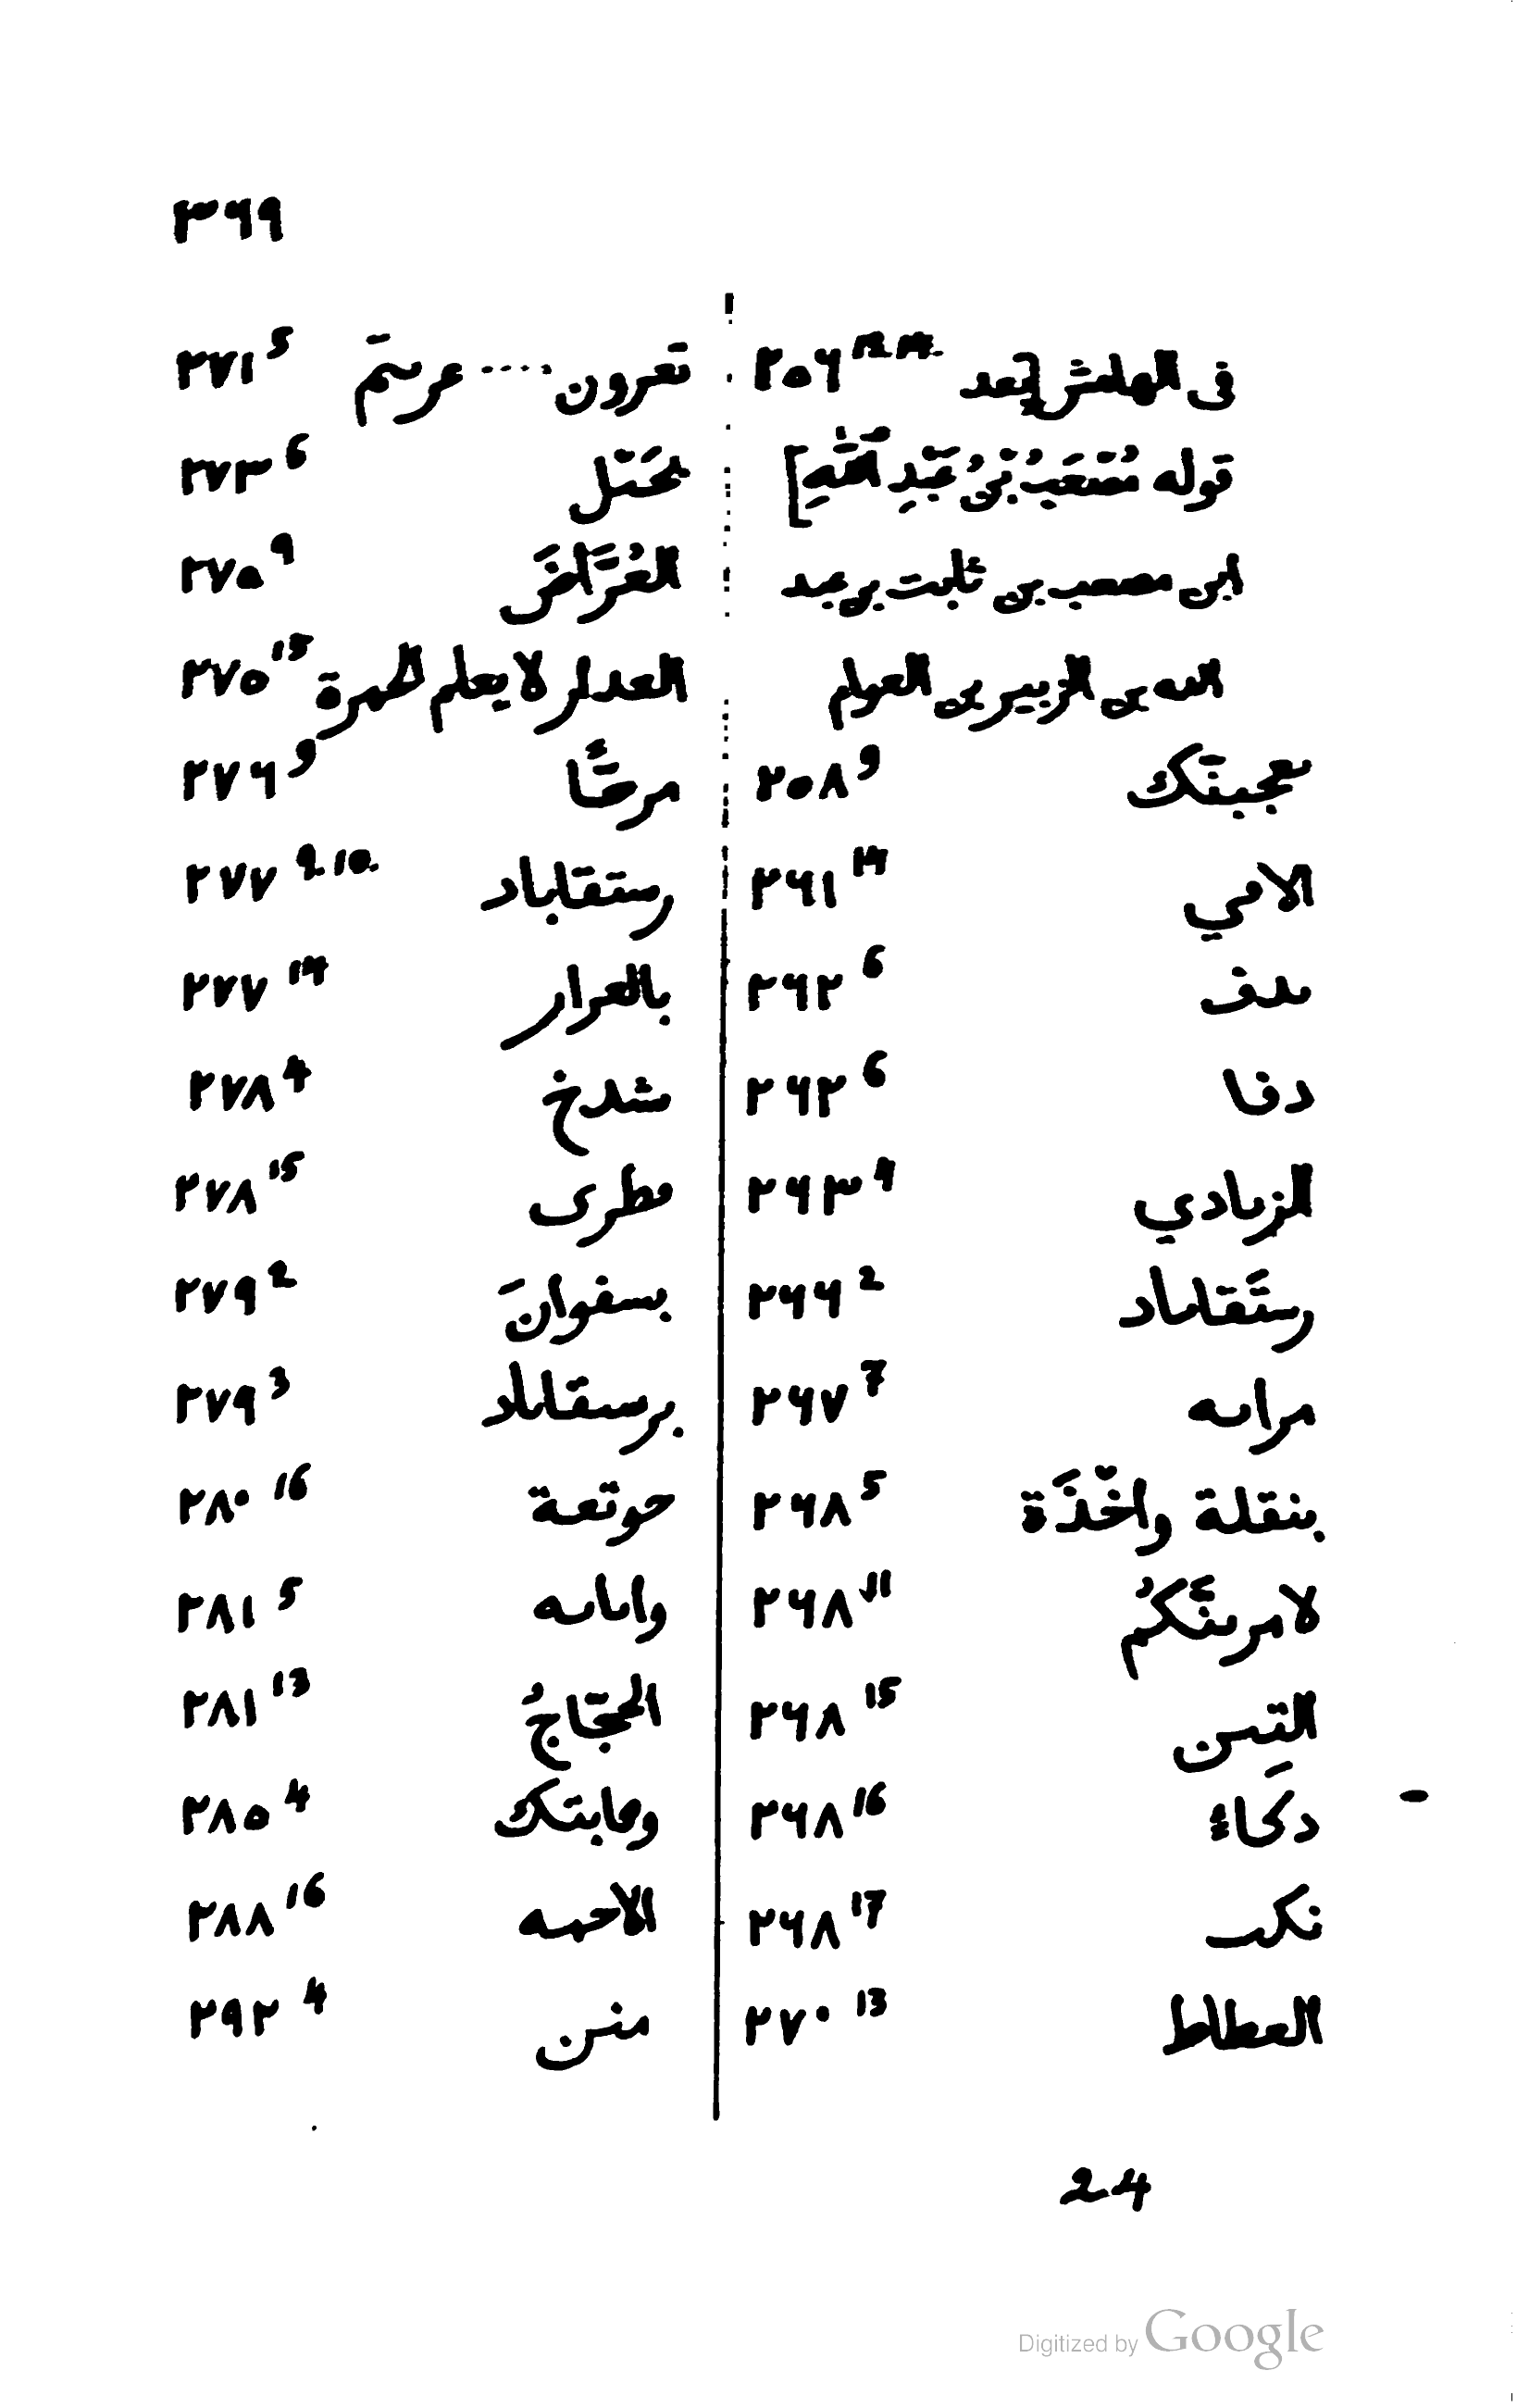 ٣٦٩
فى الهامش [بعد ٢٥٦ 12.14.
قوله مُصْعَبُ بْنُ عَبْدِ اللّٰهِ]
ابن مصعب بن ثابت بن عبد
الله بن الزبير بن العوام
ىعجبىتك ٢٥٨ 9
الامي ٢٦١ 14
ىدف ٢٦٢ 6
دفا ٢٦٢ 6
الزىادي ٢٦٣ 9
رستَقاىاد ٢٦٦ 2
مراىه ٢٦٧ 7
بنقلة واخّذَة ٢٦٨ 5
لامرىنَّكُم ٢٦٨ 11
التِىىن ٢٦٨ 15
دكاء ٢٦٨ 16
نكىب ٢٦٨ 17
العطاط ٢٧٠ 13
تعرون .... عرىىتمَ ٢٧١ 5
ىحَتَل ٢٧٣ 6
العُرَّاضَ ٢٧٥ 9
العدار لا يعلم طمرة ٢٧٥ 15
مرحًّا ٢٧٦ 9
رستقاباد ٢٧٧ 9.10.
بالعرار ٢٧٧ 14
شدخ ٢٧٨ 4
مطرى ٢٧٨ 15
بسفوانَ ٢٧٩ 2
برسىقاىاد ٢٧٩ 3
حوتعة ٢٨٠ 16
واىاىه ٢٨١ 5
الحجّاجُ ٢٨١ 13
وصابتك ٢٨٥ 4
الاحىه ٢٨٨ 16
منىن ٢٩٢ 4
24
Digitized by Google